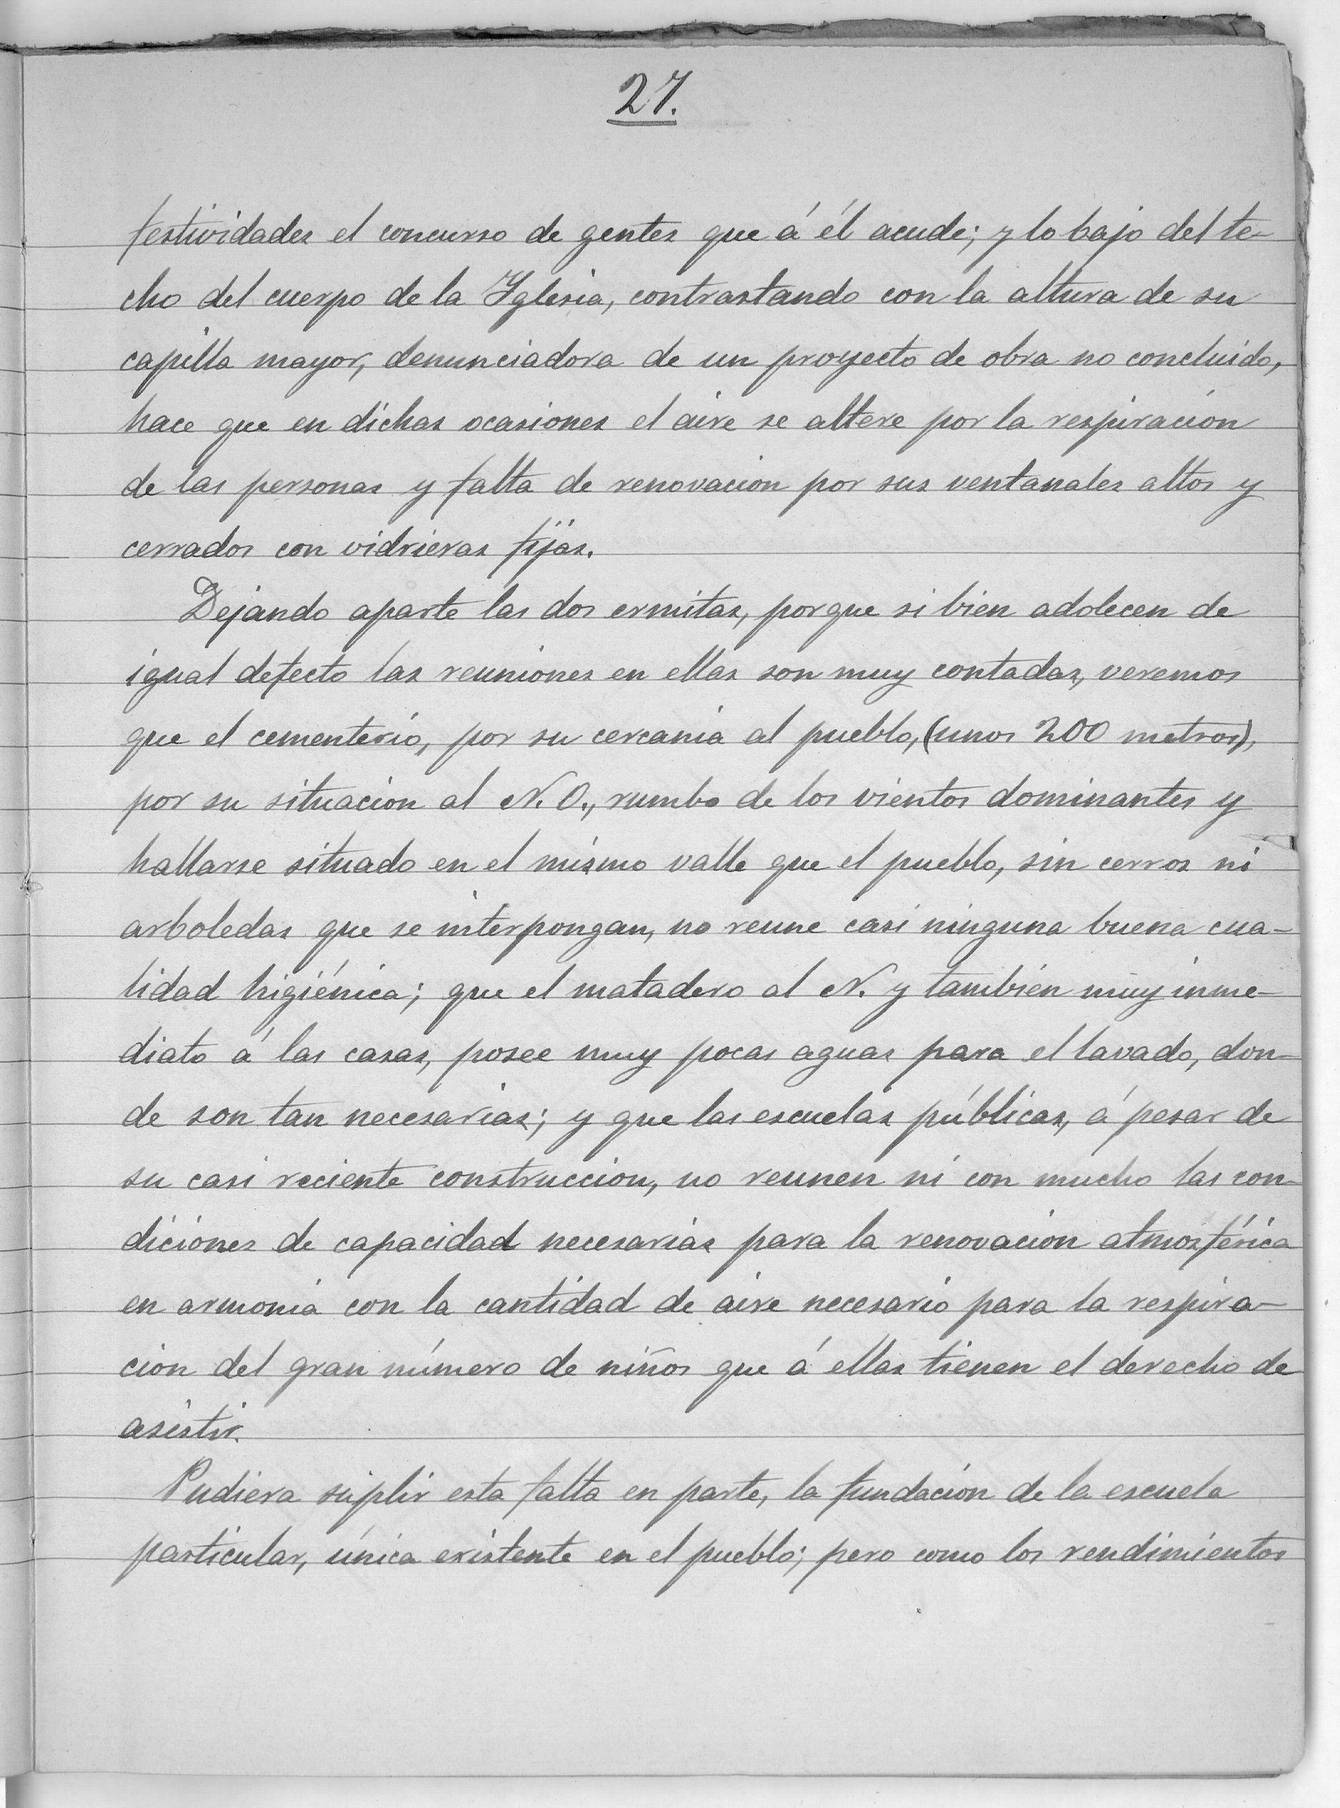 27.
festividades el concurso de gentes que á él acude; y lo bajo del te-
cho del cuerpo de la Yglesia, contrastando con la altura de su
capilla mayor, denunciadora de un proyecto de obra no concluido,
hace que en dichas ocasiones el aire se altere por la respiración
de las personas y falta de renovacion por sus ventanales altos y
cerrados con vidrieras fijas.
Dejando aparte las dos ermitas, porque si bien adolecen de
igual defecto las reuniones en ellas son muy contadas, veremos
que el cementerio, por su cercania al pueblo, (unos 200 metros),
por su situacion al N. O., rumbo de los vientos dominantes y
hallarse situado en el mismo valle que el pueblo, sin cerros ni
arboledas que se interpongan, no reune casi ninguna buena cua-
lidad higiénica; que el matadero al N. y también muy inme-
diato á las casas, posee muy pocas aguas para el lavado, don-
de son tan necesarias; y que las escuelas públicas, á pesar de
su casi reciente construccion, no reunen ni con mucho las con-
diciones de capacidad necesarias para la renovacion atmosférica
en armonia con la cantidad de aire necesario para la respira-
cion del gran número de niños que á ellas tienen el derecho de
asistir.
Pudiera suplir esta falta en parte, la fundación de la escuela
particular, única existente en el pueblo; pero como los rendimientos